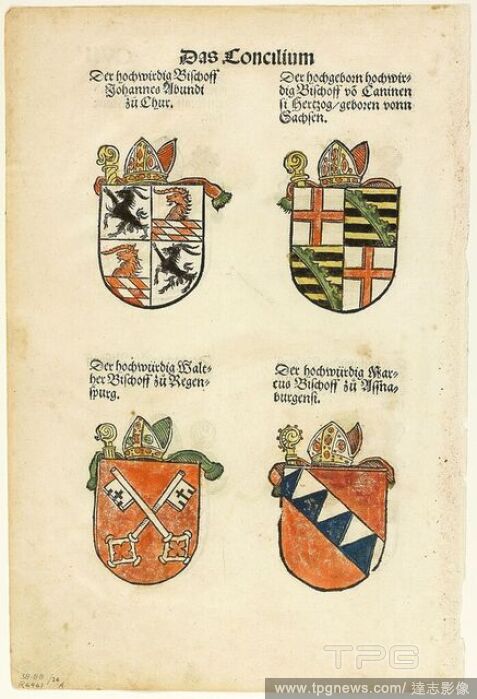 Das Concilium
Der hochwirdig Bischoff
Johannes Abundi
zů Chur.
Der hochgeborn hochwir-
dig Bischoff võ Caninen
si Hertzog/geboren vonn
Sachsen.
Der hochwürdig Walt-
her Bischoff zů Regen-
spurg.
Der hochwürdig Mar-
cus Bischoff zů Assna-
burgensi.
TPG
www.tpgnews.com/達志影像